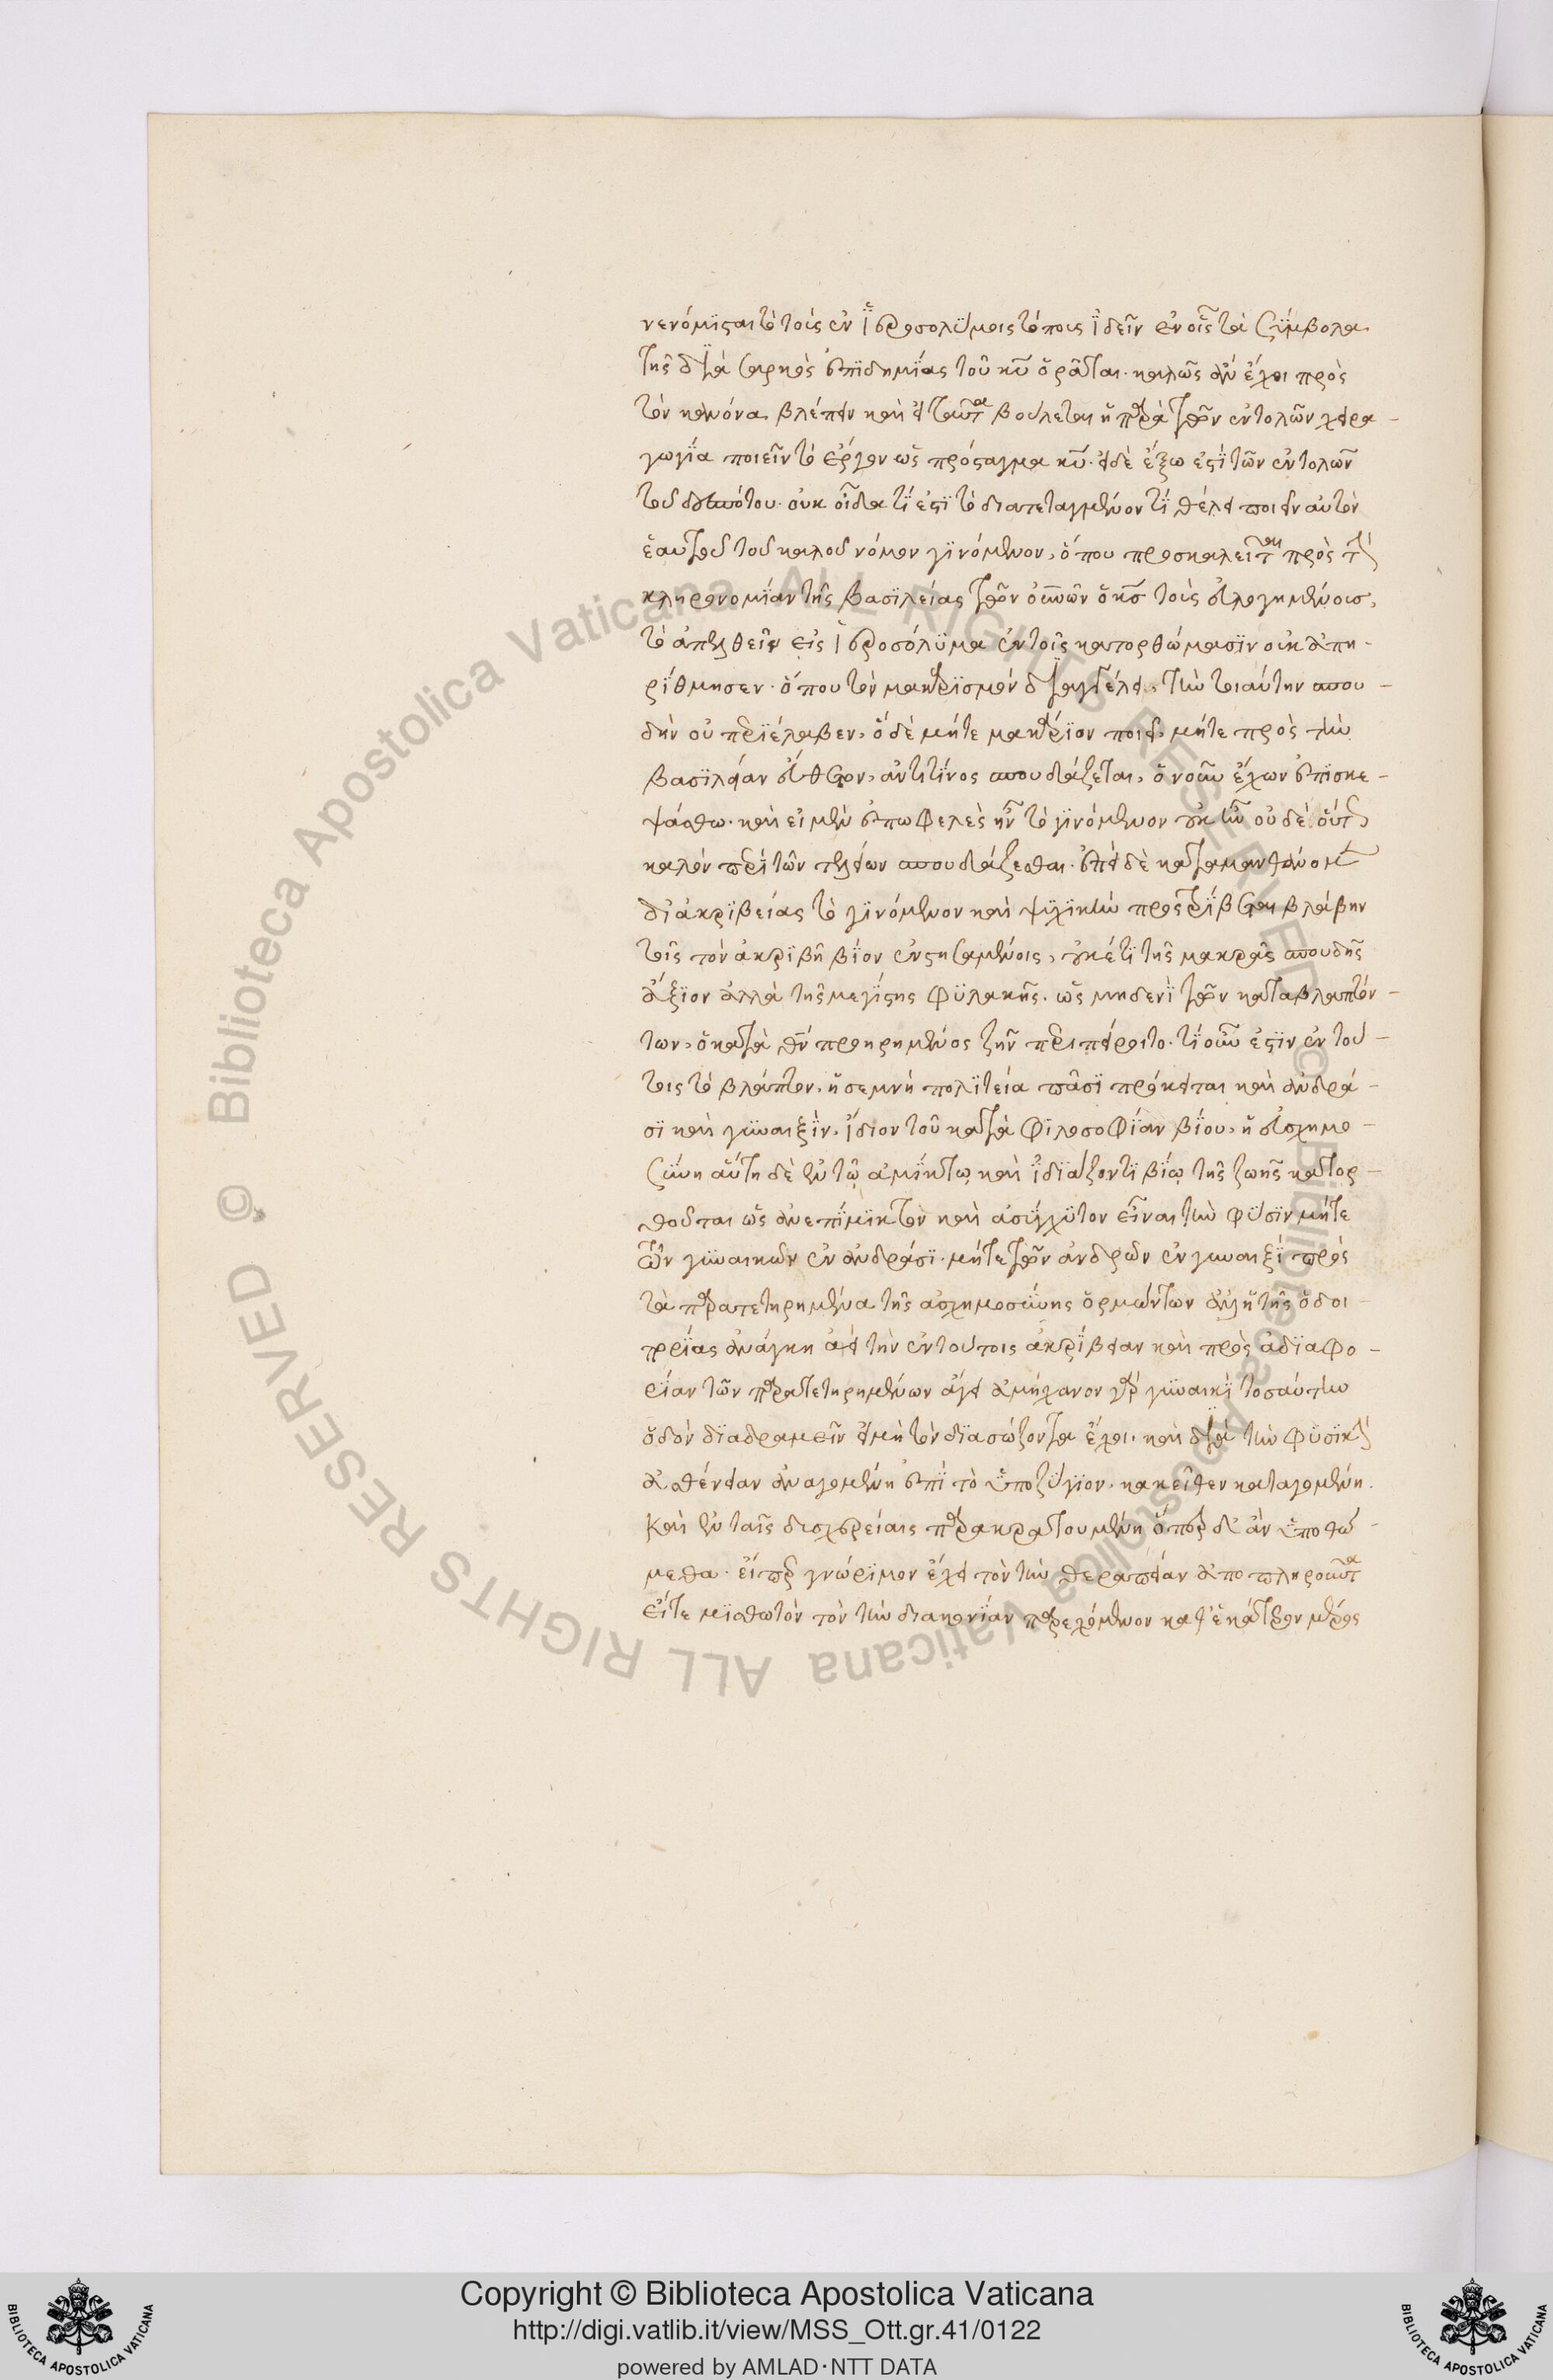 νενόμϊσται τὸ τοῖς ἐν Ἱεροσολύμοις τόποις ἰδεῖν ἐν οἷς τὰ σύμβολα
τῆς διὰ σαρκὸς ἐπιδημίας τοῦ κυ ὁρᾶται. καλῶς ἂν ἔχοι πρὸς
τὸν κανόνα βλέπειν καὶ εἰ ταῦτα βούλεται ἡ παρὰ τῶν ἐντολῶν χειρα-
γωγία ποιεῖν τὸ ἔργον ὡς πρόσταγμα κυ. εἰ δὲ ἔξω ἐστὶ τῶν ἐντολῶν
τοῦ δεσπότου. οὐκ οἶδα τί ἐστι τὸ διατεταγμένον τί θέλει ποιεῖν αὐτὸν
ἑαυτοῦ τοῦ καλοῦ νόμον γινόμενον, ὅπου προσκαλεῖται πρὸς τὴν
κληρονομίαν τῆς βασιλείας τῶν οὐνῶν ὁ κς τοὺς εὐλογημένους,
τὸ ἀπελθεῖν εἰς Ἱεροσόλυμα ἐν τοῖς κατορθώμασιν οὐκ ἀπη-
ρίθμησεν. ὅπου τὸν μακαρισμὸν διαγγέλει, τὴν τοιαύτην σπου-
δὴν οὐ περιέλαβεν, ὃ δὲ μήτε μακάριον ποιεῖ, μήτε πρὸς τὴν
βασιλείαν εὔθετον, ἀντὶ τίνος σπουδάζεται, ὁ νοῦν ἔχων ἐπισκε-
ψάσθω. καὶ εἰ μὲν ἐπωφελὲς ἦν τὸ γινόμενον οὐκ ἦν οὐδὲ οὕτως
καλὸν περὶ τῶν τελείων σπουδάζεσθαι. ἐπεὶ δὲ καταμανθάνομεν
δι ἀκριβείας τὸ γινόμενον καὶ ψυχικὴν προστρίβεσθαι βλάβην
τοῖς τὸν ἀκριβῆ βίον ἐνστησαμένοις, οὐκέτι τῆς μακρᾶς σπουδῆς
ἄξιον ἀλλὰ τῆς μεγίστης φυλακῆς. ὡς μηδενὶ τῶν καταβλαπτόν-
των, ὁ κατὰ θν προῃρημένος ζῆν περιπείροιτο. τί οὖν ἐστιν ἐν τού-
τοις τὸ βλάπτον, ἡ σεμνὴ πολιτεία πᾶσι πρόκειται καὶ ἀνδρά-
σι καὶ γυναιξίν. ἴδιον τοῦ κατὰ φιλοσοφίαν βίου, ἡ εὐσχημο-
σύνη αὕτη δὲ ἐν τῷ ἀμίκτῳ καὶ ἰδιάζοντι βίῳ τῆς ζωῆς κατορ-
θοῦται ὡς ἀνεπίμικτον καὶ ἀσύγχυτον εἶναι τὴν φύσιν μήτε
τῶν γυναικῶν ἐν ἀνδράσι. μήτε τῶν ἀνδρῶν ἐν γυναιξὶ πρὸς
τὰ παρατετηρημένα τῆς ἀσχημοσύνης ὁρμώντων ἀλλ ἡ τῆς ὁδοι-
πορίας ἀνάγκη ἀεὶ τὴν ἐν τούτοις ἀκρίβειαν καὶ πρὸς ἀδιαφο-
ρίαν τῶν παρατετηρημένων ἄγει ἀμήχανον γὰρ γυναικὶ τοσαύτην
ὁδὸν διαδραμεῖν εἰ μὴ τὸν διασώζοντα ἔχοι. καὶ διὰ τὴν φυσικὴν
ἀσθένειαν ἀναγομένη ἐπὶ τὸ ὑποζύγιον. κἀκεῖθεν καταγομένη.
Καὶ ἐν ταῖς δυσχερείαις παρακρατουμένη ὅπερ δ' ἂν ὑποθώ-
μεθα. εἴπερ γνώριμον ἔχει τὸν τὴν θεραπείαν ἀποπληροῦντα
εἴτε μισθωτὸν τὸν τὴν διακονίαν παρεχόμενον καθ' ἑκάτερον μέρος
Copyright © Biblioteca Apostolica Vaticana
http://digi.vatlib.it/view/MSS_Ott.gr.41/0122
powered by AMLAD·NTT DATA
BIBLIOTECA APOSTOLICA VATICANA
BIBLIOTECA APOSTOLICA VATICANA
© Biblioteca Apostolica Vaticana ALL RIGHTS RESERVED
© Biblioteca Apostolica Vaticana ALL RIGHTS RESERVED